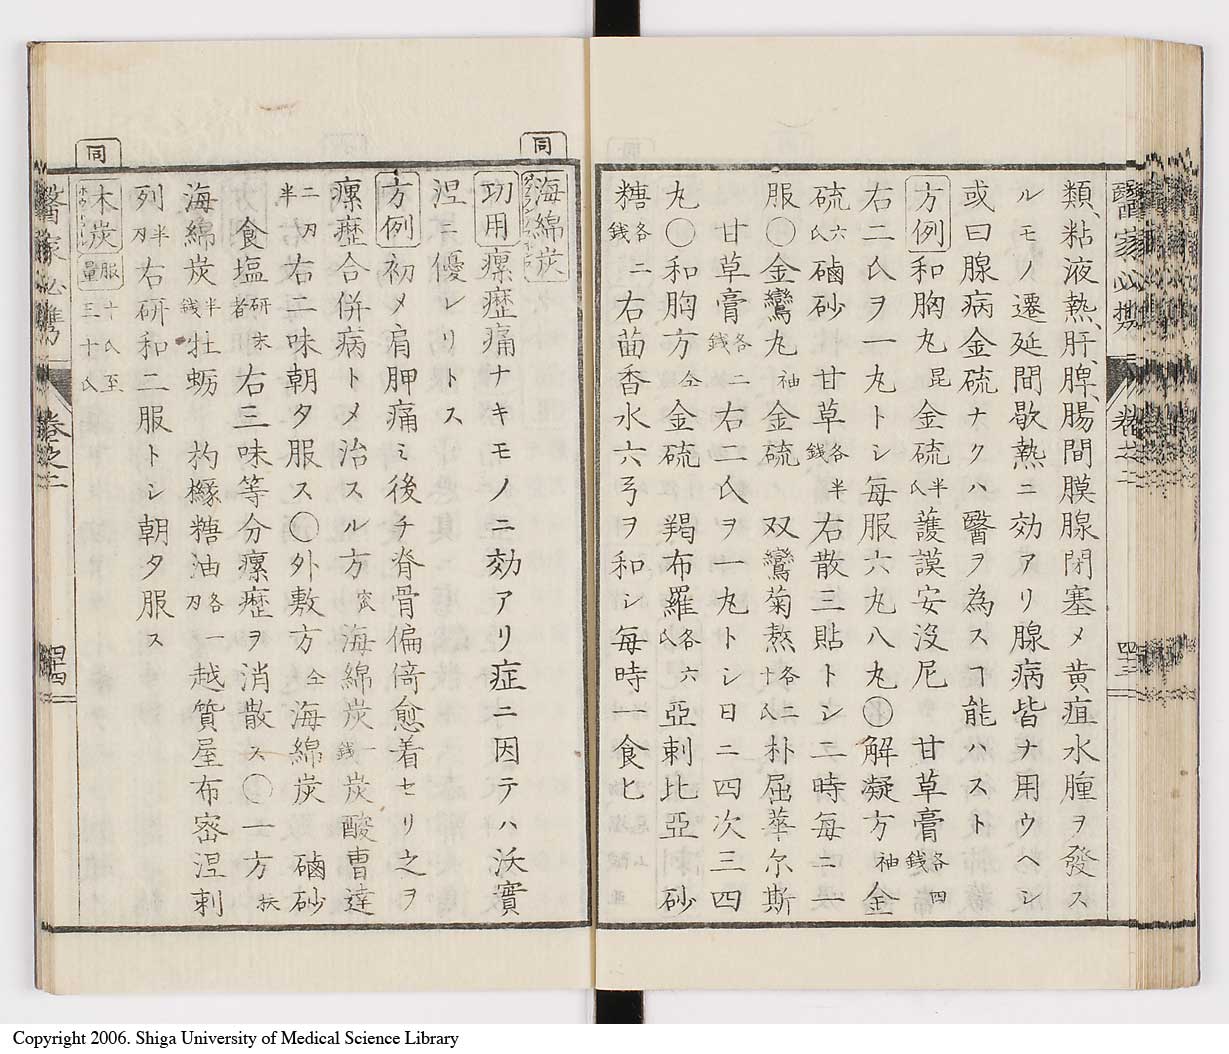 類、粘液熱、肝、脾、腸間膜腺閉塞メ黄疸水腫ヲ發ス
ルモノ遷延間歇熱ニ効アリ腺病皆ナ用ウヘシ
或曰腺病金硫ナクハ醫ヲ為スヿ能ハスト
方例 和胸丸昆金硫半氏護謨安没尼 甘草膏各四錢
右二氏ヲ一丸トシ毎服六丸八丸〇解凝方袖金
硫六氏磠砂 甘草各半錢右散三貼トシ二時毎ニ一
服〇金鸞丸袖金硫 双鸞菊熬各二十氏朴屈華尔斯
甘草膏各二錢右二氏ヲ一丸トシ日ニ四次三四
丸〇和胸方仝金硫 羯布羅各六氏亞剌比亞 砂
糖各二錢右茴香水六弓ヲ和シ毎時一食匕
醫家必携 卷之二 四十三
同
海綿炭
功用 瘰癧痛ナキモノニ効アリ症ニ因テハ沃實
涅ニ優レリトス
方例 初メ肩胛痛ミ後チ脊骨偏倚愈着セリ之ヲ
瘰癧合併病トメ治スル方宻海綿炭一錢炭酸曹達
二刄半右二味朝夕服ス〇外敷方仝海綿炭 磠砂
食塩研末者右三味等分瘰癧ヲ消散ス〇一方扶
海綿炭半錢牡蛎 杓櫞糖油各一刄越質屋布密涅剌
列半刄右研和二服トシ朝夕服ス
同
木炭 服量十氏至三十氏
醫家必携 卷之二 四十四
Copyright 2006. Shiga University of Medical Science Library